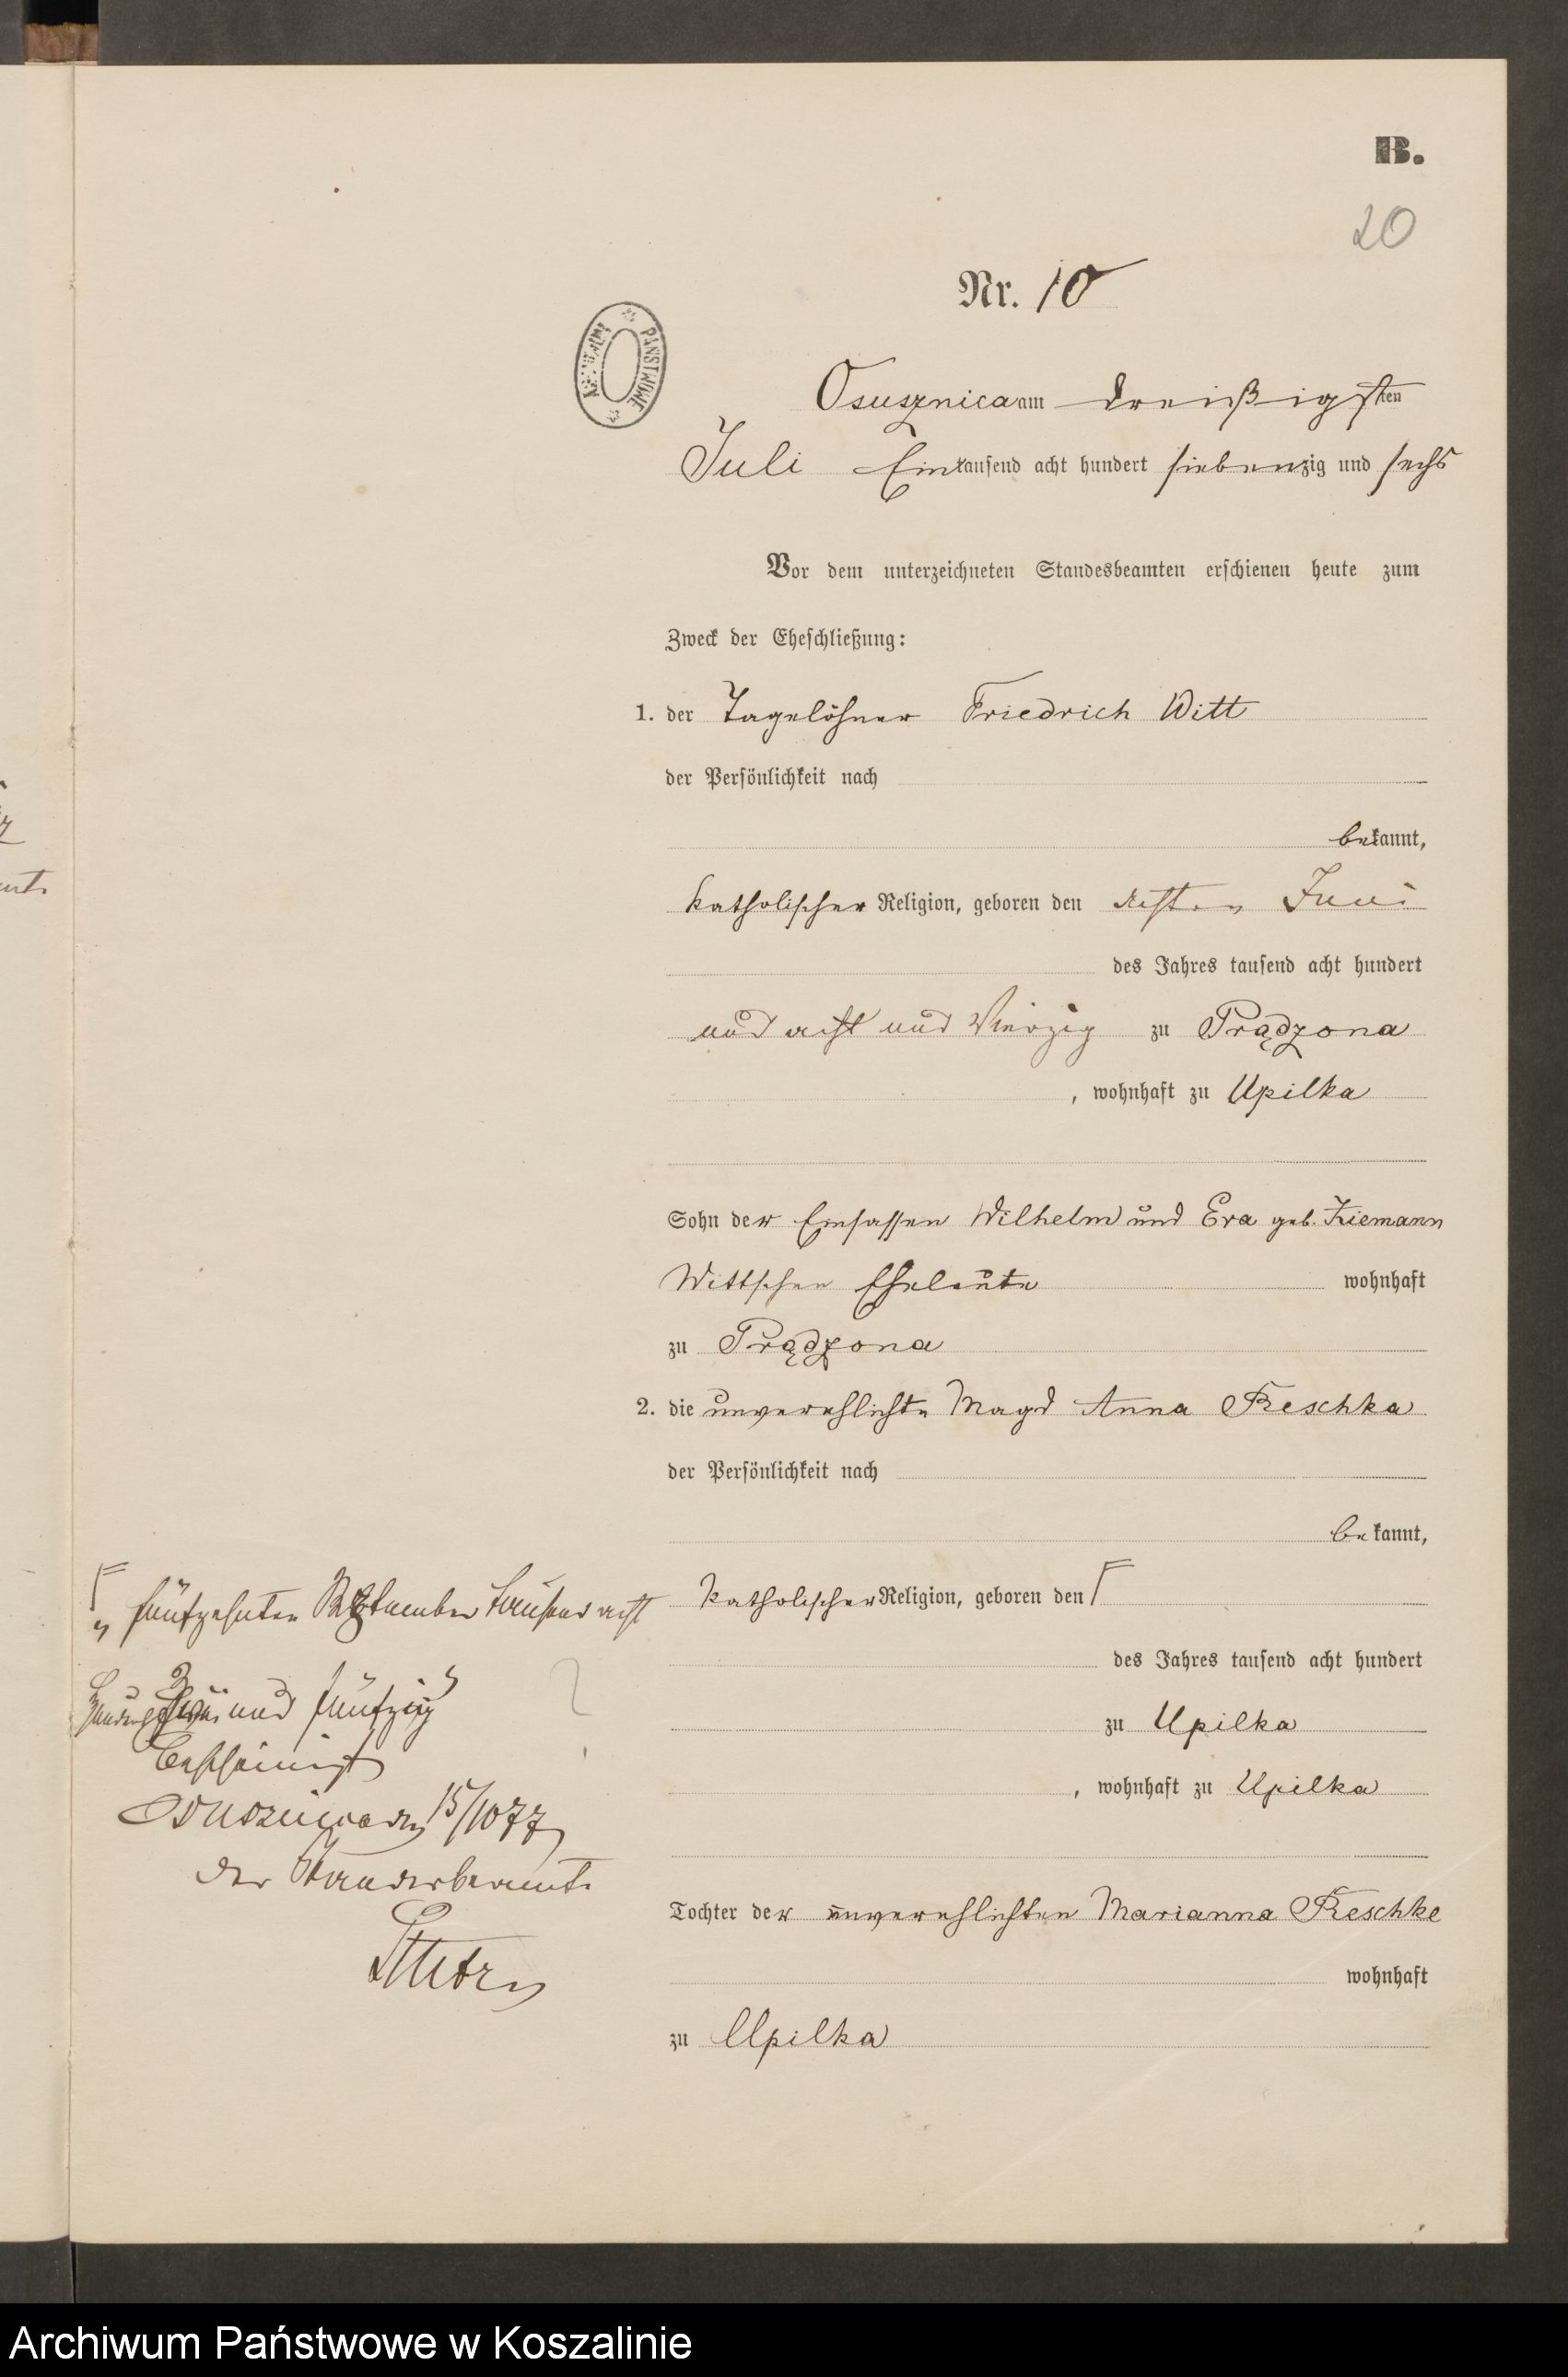 B.
20
Nr. 10
ARCHIWUM PAŃSTWOWE
Osusznica am dreißigsten
Juli Eintausend acht hundert siebenzig und sechs
Vor dem unterzeichneten Standesbeamten erschienen heute zum
Zweck der Eheschließung:
1. der Tagelöhner Friedrich Witt
der Persönlichkeit nach
bekannt,
katholischer Religion, geboren den achten Juni
des Jahres tausend acht hundert
und acht und Vierzig zu Prądzona
, wohnhaft zu Upilka
Sohn der Einsassen Wilhelm und Eva geb. Ziemann
Wittschen Eheleute wohnhaft
zu Prądzona
2. die unverehlichte Magd Anna Reschka
der Persönlichkeit nach
bekannt,
katholischer Religion, geboren den
des Jahres tausend acht hundert
zu Upilka
, wohnhaft zu Upilka
Tochter der unverehlichten Marianna Reschke
wohnhaft
zu Upilka
fünfzehnten September tausend acht
hundert zwei und fünfzig
bescheinigt
Osusznica den 15/10 77
Der Standesbeamte
Archiwum Państwowe w Koszalinie